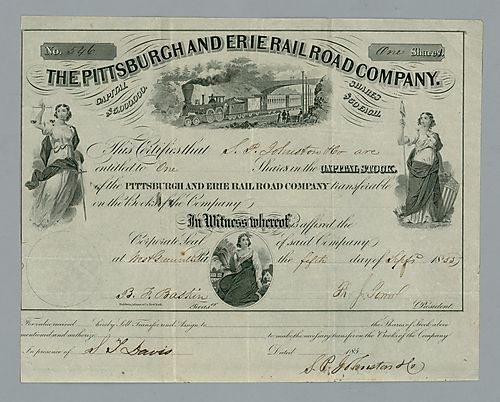 No. 546
One Shares
THE PITTSBURGH AND ERIE RAIL ROAD COMPANY.
CAPITAL $5,000,000.
SHARES $50 EACH.
This Certifies that S. P. Johnston & Co are
entitled to One Shares in the CAPITAL STOCK.
of the PITTSBURGH AND ERIE RAIL ROAD COMPANY transferable
on the Books of the Company
In Witness whereof is affixed the
Corporate Seal of said Company
at the fifth day of Sept 1855
B. F. Baskin
Treas
President
For value received hereby Sell Transfer and Assign to the Shares of Stock above
mentioned and authorize to make the necessary transfer on the Books of the Company
In presence of S T Davis Dated 185
S. P. Johnston & Co